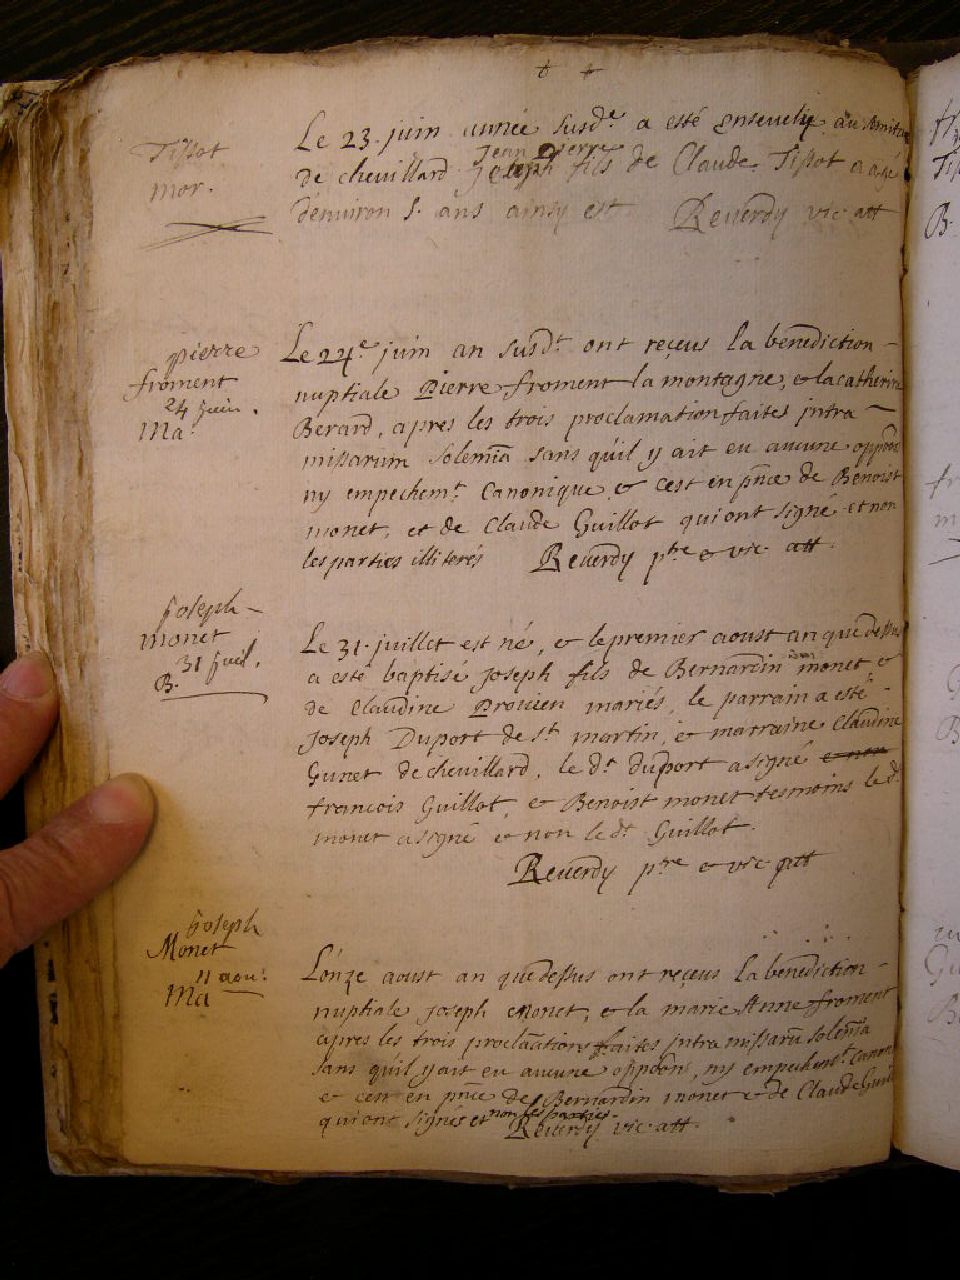 Tissot
mor.
Le 23. juin année susde a esté ensevelie au semitiere
Jean Pierre
de chevillard Joseph fils de Claude Tissot aagé
d'environ 5. ans ainsy est Reverdy vic att
pierre
froment
24 juin.
Ma.
Le 24e juin an susdt ont reçeus la bénédiction -
nuptiale Pierre froment la montagne, & la catherine
Berard, apres les trois proclamation faites jntra -
missarum solemīa sans qu'il y ait eu aucune oppōōn
ny empechemt Canonique & c'est en pñce de Benoist
monet, et de Claude Guillot qui ont signé et non
les parties illiterés Reverdy ptre & vic att.
Joseph -
monet
31 juil.
B.
Le 31. juillet est né, & le premier aoust an que dessus
a esté baptisé joseph fils de Bernardin monet &
de Claudine Prouien mariés, le parrain a esté -
joseph Duport de st martin, & marraine Claudine
Gunet de chevillard, le dt duport a signé & non
francois Guillot, & Benoist monet tesmoins le dt
monet a signé & non le dt Guillot.
Reverdy ptre & vic att
Joseph
Monet
11 aou.
Ma
L'onze aoust an que dessus ont reçeus la bénédiction -
nuptiale joseph Monet, & la marie Anne froment
apres les trois proclāātions faites jntra missarū solemīa
sans qu'il y ait eu aucune oppōōn, ny empechemt canon
& c'est en pñce de Bernardin monet & de Claude Guil
qui ont signés et non les parties.
Reverdy vic att.